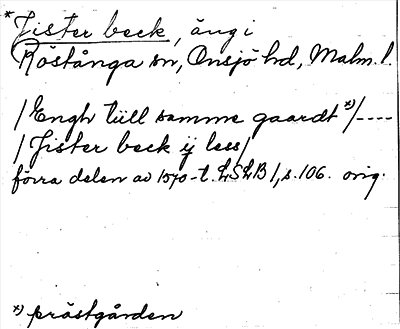 *Fister beck, äng i
Röstånga sn, Onsjö hd, Malm. l.
/Engh tiill samme gaardt *)/----
/Fister beck ij less/
förra delen av 1570-t. LSLB 1, s. 106. orig.
*) prästgården